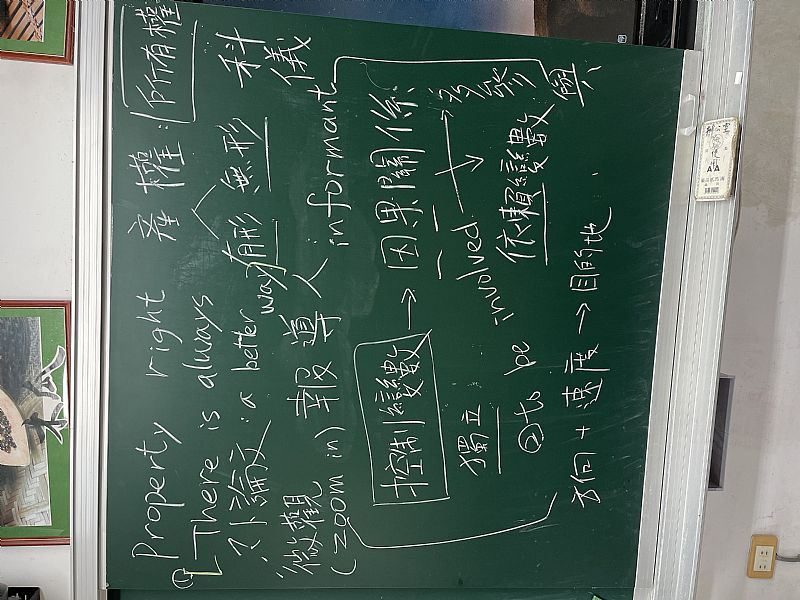 ① Property right 產權:所有權
There is always
小論文: a better way 有形 無形 科儀
微觀
(zoom in) 報導人 informant
控制變數 → 因果關係
獨立 → 依賴變數
② to be involved → 參與
方向 + 速度 → 目的地